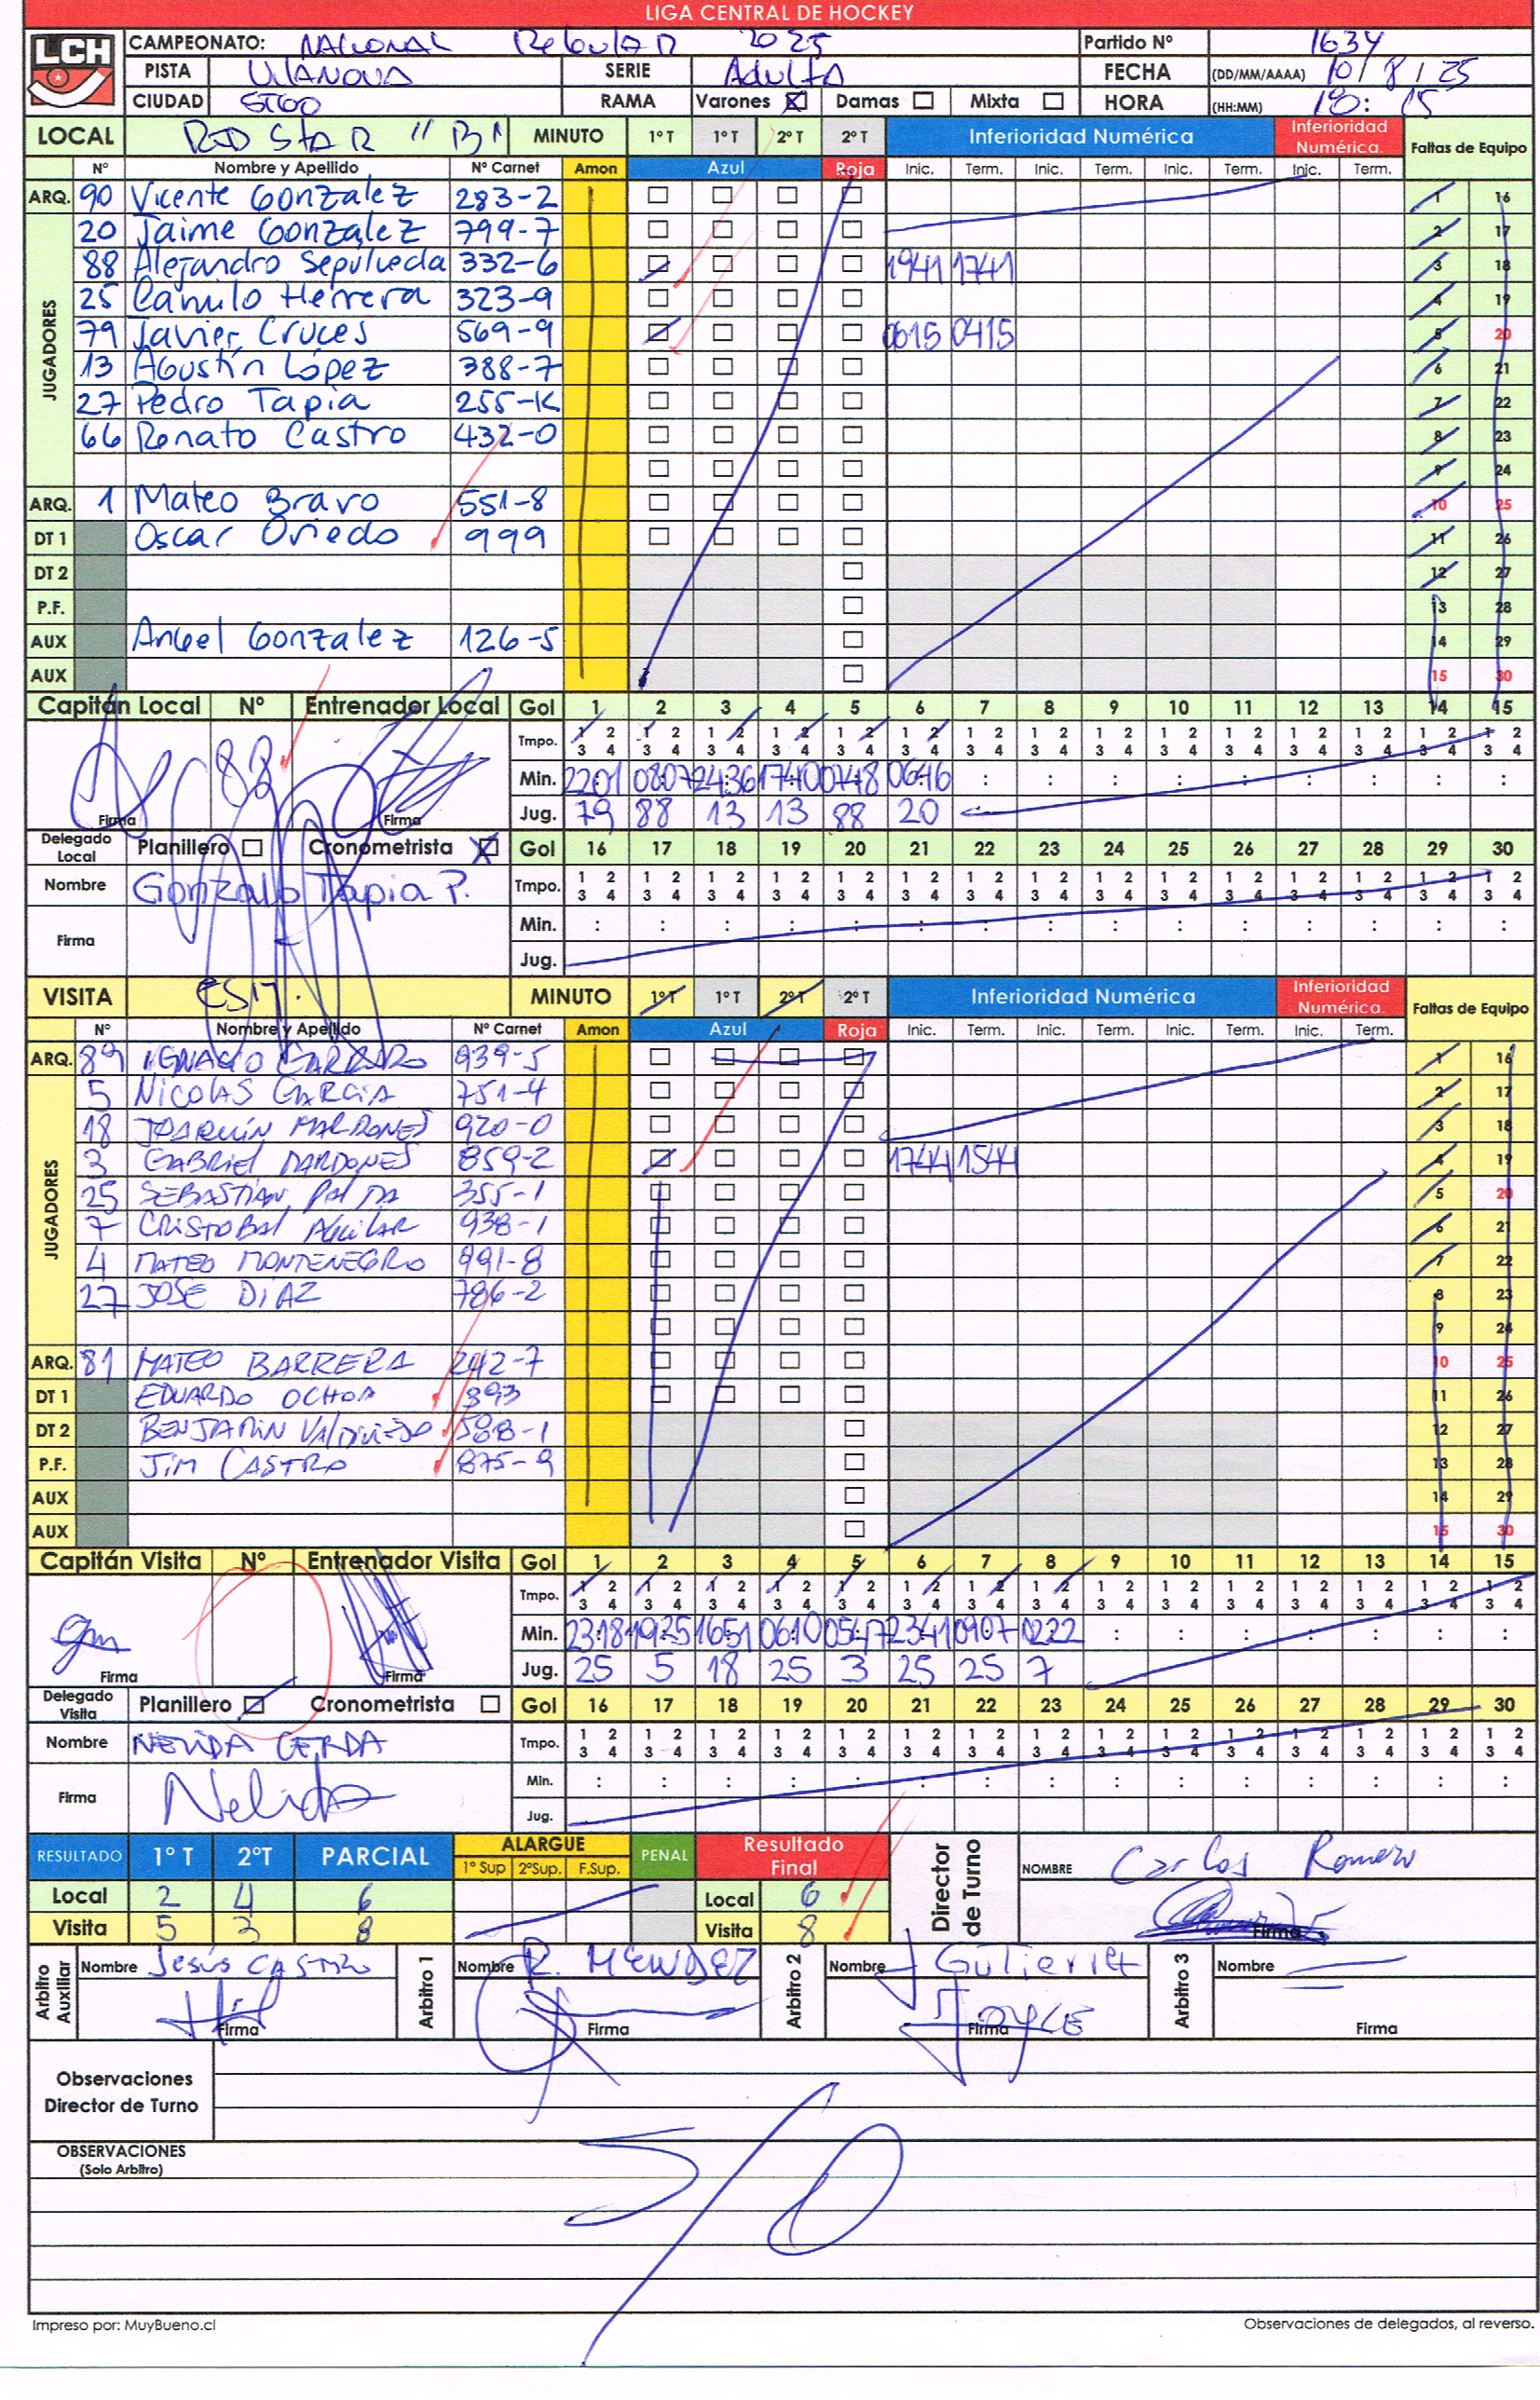 LIGA CENTRAL DE HOCKEY
LCH CAMPEONATO: NACIONAL Regular 2025 Partido Nº 1634
PISTA VILANOVA SERIE Adulta FECHA (DD/MM/AAAA) 10/8/25
CIUDAD STGO RAMA Varones Damas Mixta HORA (HH:MM) 18:15
LOCAL RED STAR "B" MINUTO 1º T 1º T 2º T 2º T Inferioridad Numérica Inferioridad Numérica. Faltas de Equipo
Nº Nombre y Apellido Nº Carnet Amon Azul Roja Inic. Term. Inic. Term. Inic. Term. Inic. Term.
ARQ. 90 Vicente Gonzalez 283-2 1 16
JUGADORES
20 Jaime Gonzalez 799-7 2 17
88 Alejandro Sepulveda 332-6 1941 1741 3 18
25 Camilo Herrera 323-9 4 19
79 Javier Cruces 569-9 0615 0415 5 20
13 Agustín López 388-7 6 21
27 Pedro Tapia 255-K 7 22
66 Renato Castro 432-0 8 23
9 24
ARQ. 1 Mateo Bravo 551-8 10 25
DT 1 Oscar Oviedo 999 11 26
DT 2 12 27
P.F. 13 28
AUX Angel Gonzalez 126-5 14 29
AUX 15 30
Capitán Local Nº Entrenador Local Gol 1 2 3 4 5 6 7 8 9 10 11 12 13 14 15
Tmpo. 1 2 1 2 1 2 1 2 1 2 1 2 1 2 1 2 1 2 1 2 1 2 1 2 1 2 1 2 1 2
3 4 3 4 3 4 3 4 3 4 3 4 3 4 3 4 3 4 3 4 3 4 3 4 3 4 3 4 3 4
88 Min. 22:01 08:07 24:36 17:40 07:48 06:46 : : : : : : : : :
Firma Firma Jug. 79 88 13 13 88 20
Delegado Local Planillero Cronometrista Gol 16 17 18 19 20 21 22 23 24 25 26 27 28 29 30
Nombre Gonzalo Tapia P. Tmpo. 1 2 1 2 1 2 1 2 1 2 1 2 1 2 1 2 1 2 1 2 1 2 1 2 1 2 1 2 1 2
3 4 3 4 3 4 3 4 3 4 3 4 3 4 3 4 3 4 3 4 3 4 3 4 3 4 3 4 3 4
Firma Min. : : : : : : : : : : : : : : :
Jug.
VISITA MINUTO 1º T 1º T 2º T 2º T Inferioridad Numérica Inferioridad Numérica. Faltas de Equipo
Nº Nombre y Apellido Nº Carnet Amon Azul Roja Inic. Term. Inic. Term. Inic. Term. Inic. Term.
ARQ. 89 IGNACIO 939-5 1 16
JUGADORES
5 NICOLAS GARCIA 751-4 2 17
18 JOAQUÍN MARDONES 920-0 3 18
3 GABRIEL MARDONES 859-2 1744 1544 4 19
25 SEBASTIÁN PALMA 355-1 5 20
7 CRISTOBAL AGUILAR 938-1 6 21
4 MATEO MONTENEGRO 991-8 7 22
27 JOSE DIAZ 786-2 8 23
9 24
ARQ. 81 MATEO BARRERA 242-7 10 25
DT 1 EDUARDO OCHOA 893 11 26
DT 2 BENJAMIN Valdivieso 588-1 12 27
P.F. Jim CASTRO 875-9 13 28
AUX 14 29
AUX 15 30
Capitán Visita Nº Entrenador Visita Gol 1 2 3 4 5 6 7 8 9 10 11 12 13 14 15
Tmpo. 1 2 1 2 1 2 1 2 1 2 1 2 1 2 1 2 1 2 1 2 1 2 1 2 1 2 1 2 1 2
3 4 3 4 3 4 3 4 3 4 3 4 3 4 3 4 3 4 3 4 3 4 3 4 3 4 3 4 3 4
Min. 23:18 19:25 16:51 06:10 05:47 23:41 09:07 02:22 : : : : : : :
Firma Firma Jug. 25 5 18 25 3 25 25 7
Delegado Visita Planillero Cronometrista Gol 16 17 18 19 20 21 22 23 24 25 26 27 28 29 30
Nombre NELIDA CERDA Tmpo. 1 2 1 2 1 2 1 2 1 2 1 2 1 2 1 2 1 2 1 2 1 2 1 2 1 2 1 2 1 2
3 4 3 4 3 4 3 4 3 4 3 4 3 4 3 4 3 4 3 4 3 4 3 4 3 4 3 4 3 4
Firma Nelida Min. : : : : : : : : : : : : : : :
Jug.
RESULTADO 1º T 2ºT PARCIAL ALARGUE 1º Sup 2ºSup. F.Sup. PENAL Resultado Final Director de Turno NOMBRE Carlos Romero
Local 2 4 6 Local 6
Visita 5 3 8 Visita 8 Firma
Arbitro Auxiliar Nombre Jesús CASTRO Arbitro 1 Nombre R. MENDEZ Arbitro 2 Nombre J Gutierrez Arbitro 3 Nombre
Firma Firma Firma Firma
Observaciones
Director de Turno
OBSERVACIONES
(Solo Arbitro)
S/O
Impreso por: MuyBueno.cl Observaciones de delegados, al reverso.